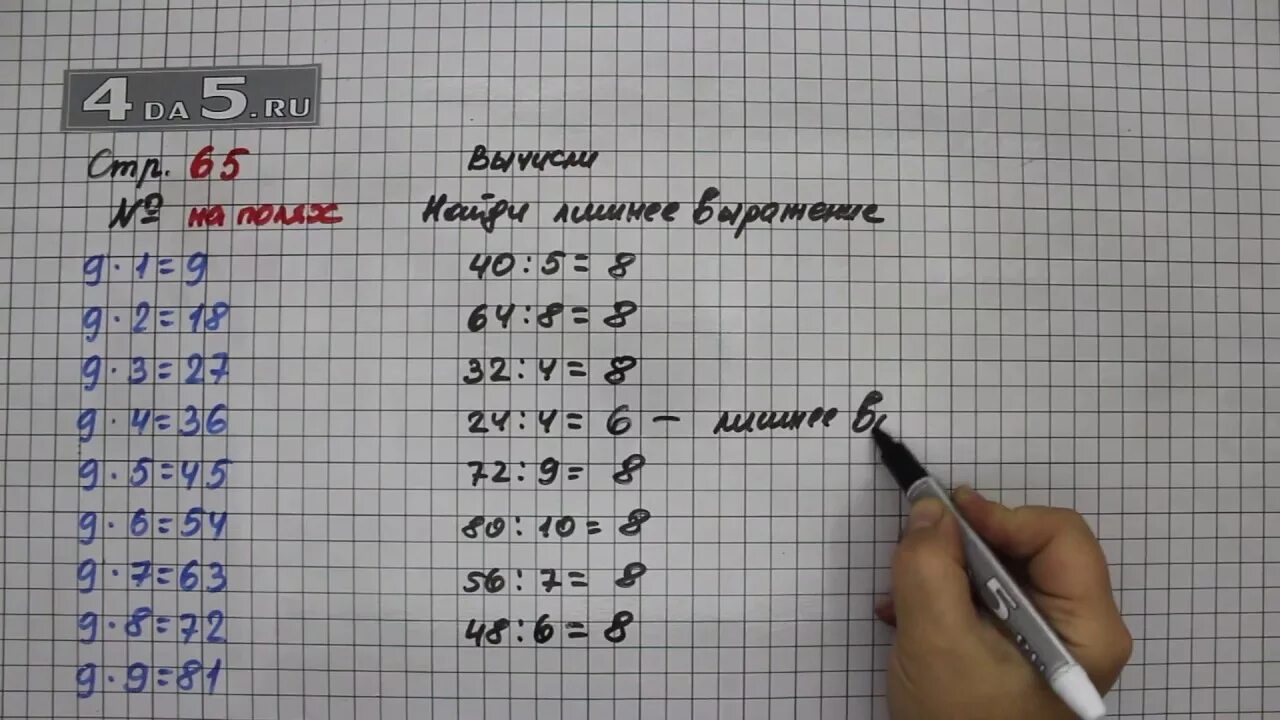 4DA5.RU
Стр. 65
№ на полях
9 · 1 = 9
9 · 2 = 18
9 · 3 = 27
9 · 4 = 36
9 · 5 = 45
9 · 6 = 54
9 · 7 = 63
9 · 8 = 72
9 · 9 = 81
Вычисли
Найди лишнее выражение
40 : 5 = 8
64 : 8 = 8
32 : 4 = 8
24 : 4 = 6 — лишнее в
72 : 9 = 8
80 : 10 = 8
56 : 7 = 8
48 : 6 = 8
5